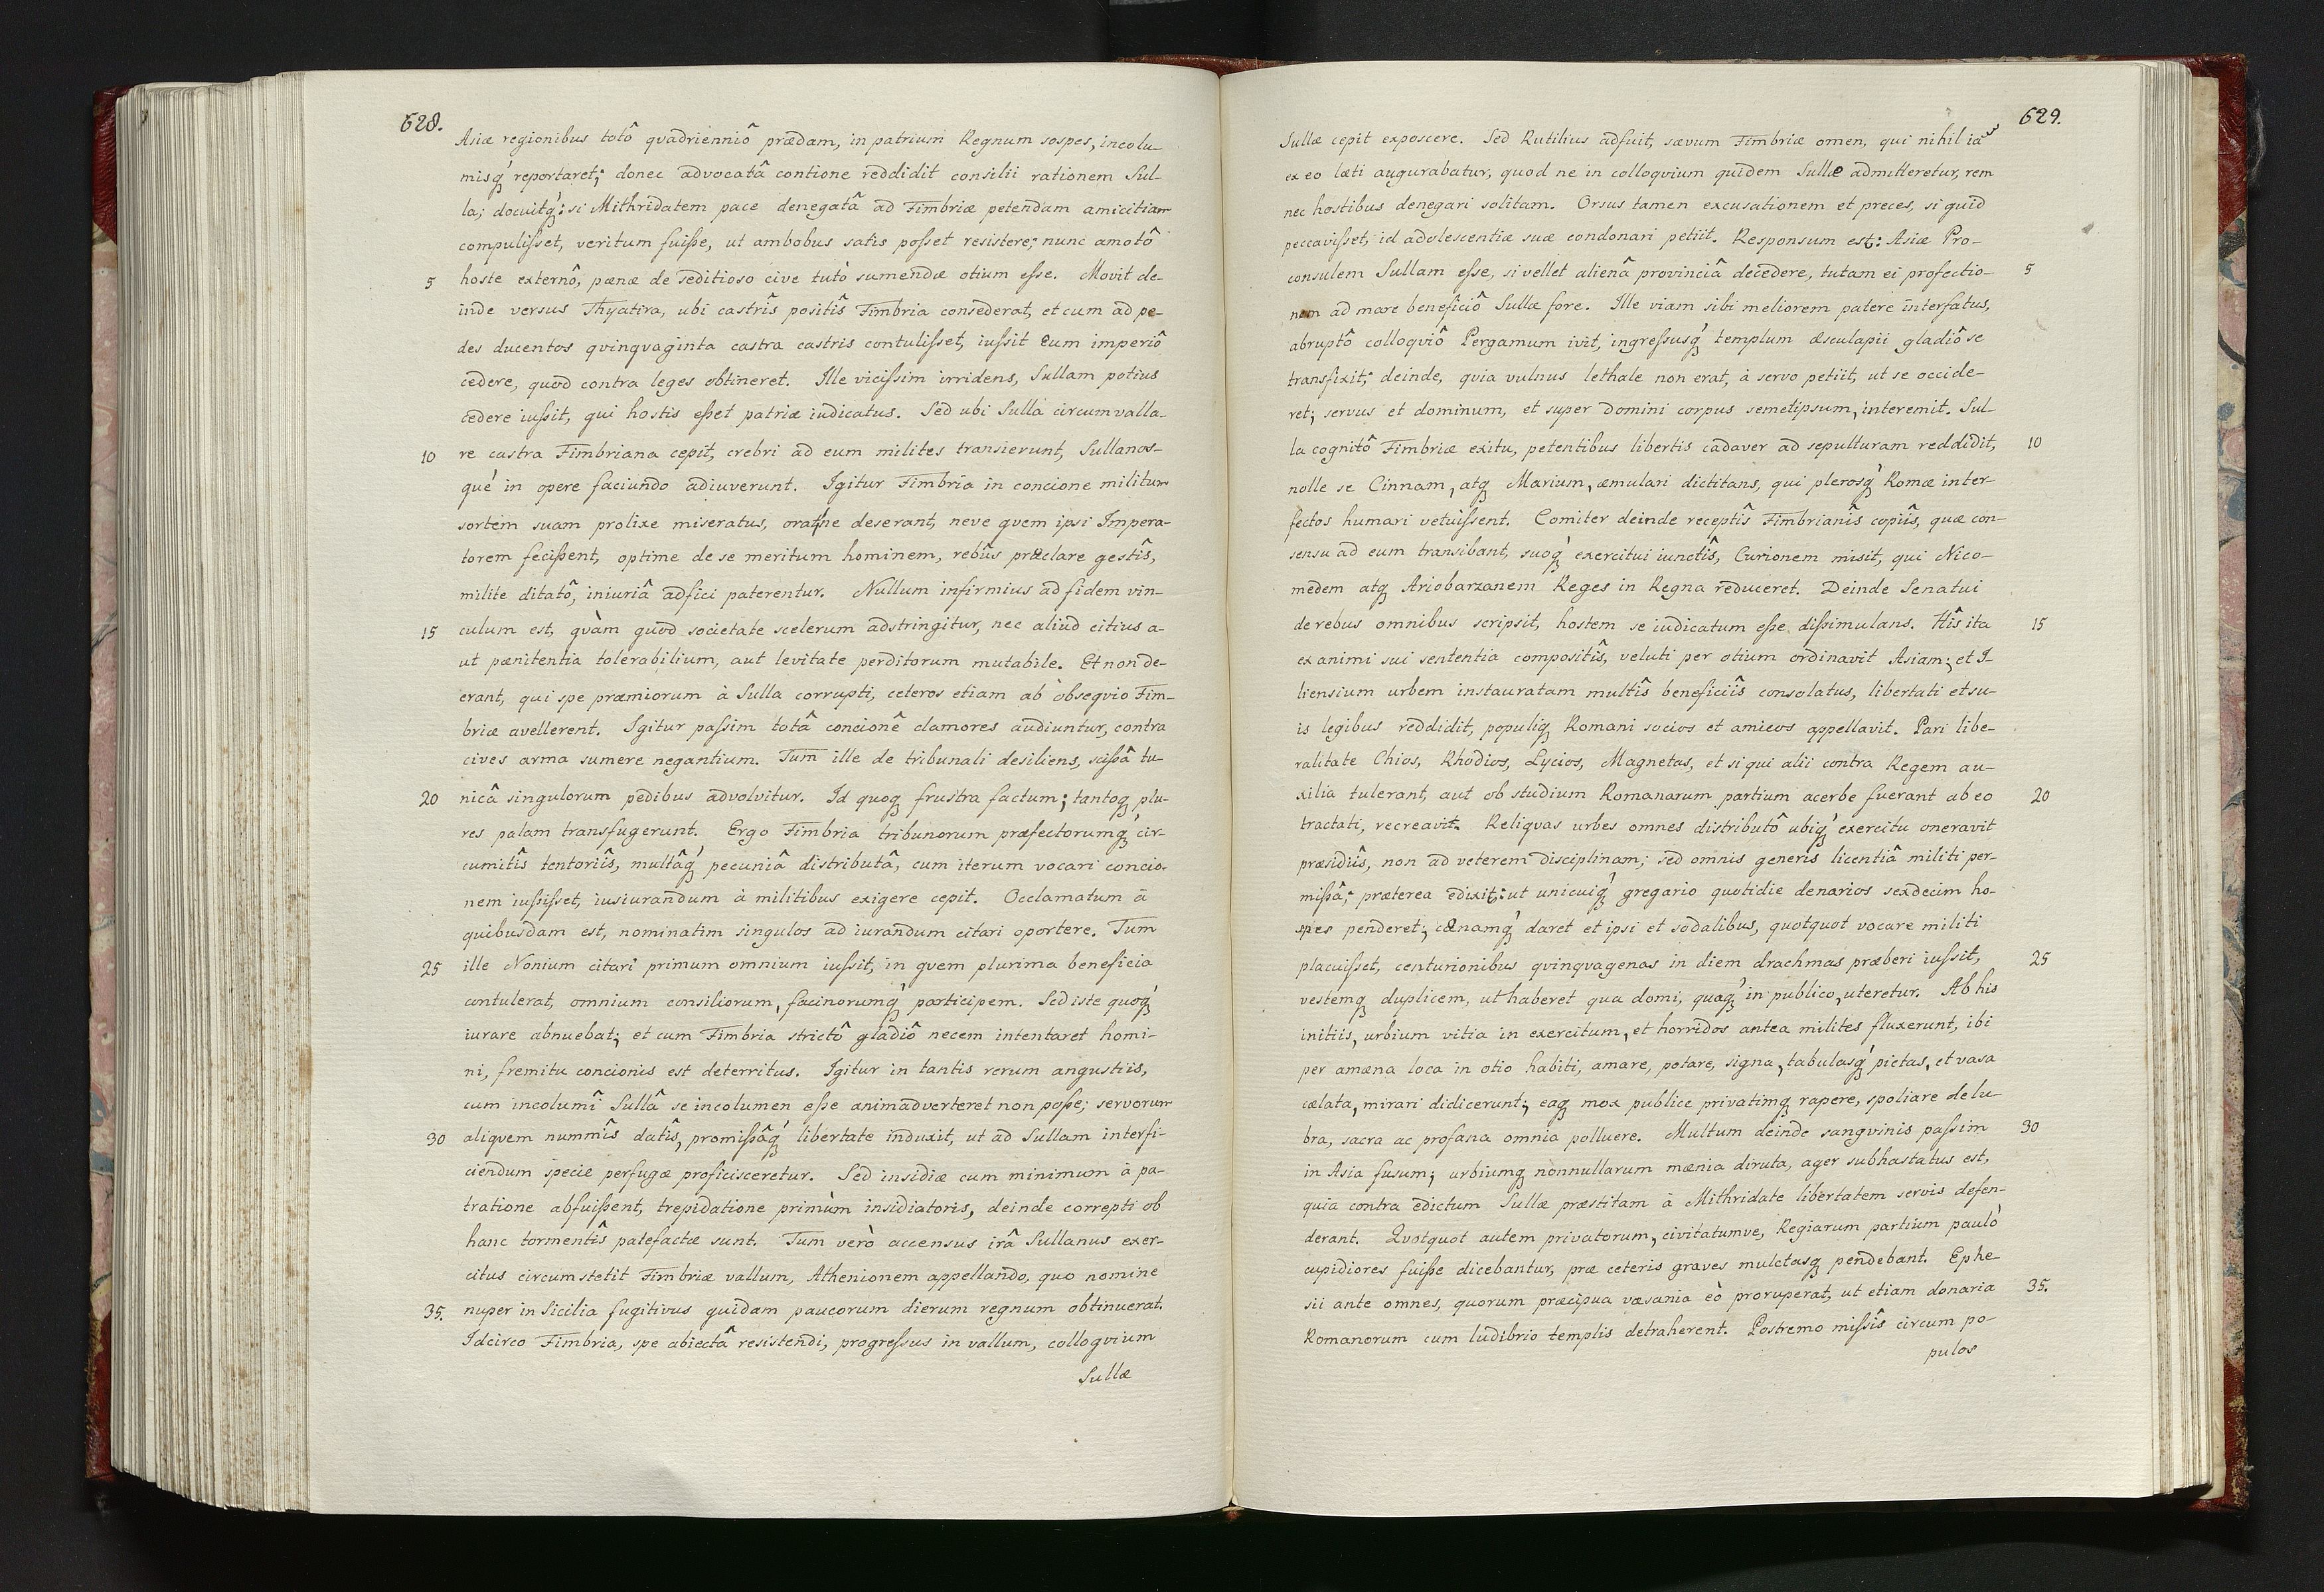 628.
Asiæ regionibus totô qvadrienniô prædam, in patrium Regnum sospes, incolu-
misq́ reportaret; donec advocatâ contione reddidit consilii rationem Sul-
la; docuitq́: si Mithridatem pace denegatâ ad Fimbriæ petendam amicitiam
compulisset, veritum fuisse, ut ambobus satis posset resistere; nunc amotô
5 hoste externô, pænæ de seditioso cive tutò sumendæ otium esse. Movit de-
inde versus Thyatira, ubi castrîs positîs Fimbria consederat, et cum ad pe-
des ducentos qvinqvaginta castra castris contulisset, iussit eum imperiô
cedere, quod contra leges obtineret. Ille vicissim irridens, Sullam potius
cedere iussit, qui hostis esset patriæ iudicatus. Sed ubi Sulla circumvalla-
10 re castra Fimbriana cepit, crebri ad eum milites transierunt, Sullanos-
qué in opere faciundo adiuverunt. Igitur Fimbria in concione militum
sortem suam prolixe miseratus, orat, ne deserant, neve qvem ipsi Impera-
torem fecissent, optime de se meritum hominem, rebûs præclare gestîs,
milite ditatô, iniuriâ adfici paterentur. Nullum infirmius ad fidem vin-
15 culum est, qvàm quod societate scelerum adstringitur, nec aliud citius a-
ut pænitentia tolerabilium, aut levitate perditorum mutabile. Et non de-
erant, qui spe præmiorum à Sulla corrupti, ceteros etiam ab obseqvio Fim-
briæ avellerent. Igitur passim totâ concionê clamores audiuntur, contra
cives arma sumere negantium. Tum ille de tribunali desiliens, scissâ tu-
20 nicâ singulorum pedibus advolvitur. Id quoq frustra factum; tantoq plu-
res palam transfugerunt. Ergo Fimbria tribunorum præfectorumq́ cir-
cumitîs tentoriîs, multâq́ pecuniâ distributâ, cum iterum vocari concio-
nem iussisset, iusiurandum à militibus exigere cepit. Occlamatum à
quibusdam est, nominatim singulos ad iurandum citari oportere. Tum
25 ille Nonium citari primum omnium iussit, in qvem plurima beneficia
contulerat, omnium consiliorum, facinorumq́ participem. Sed iste quoq́
iurare abnuebat; et cum Fimbria strictô gladiô necem intentaret homi-
ni, fremitu concionis est deterritus. Igitur in tantis rerum angustiis,
cum incolumî Sullâ se incolumen esse animadverteret non posse; servorum
30 aliqvem nummîs datîs, promissâq́ libertate induxit, ut ad Sullam interfi-
ciendum specie perfugæ proficisceretur. Sed insidiæ cum minimum à pa-
tratione abfuissent, trepidatione primùm insidiatoris, deinde correpti ob
hanc tormentîs patefactæ sunt. Tum verò accensus irâ Sullanus exer-
citus circumstetit Fimbriæ vallum, Athenionem appellando, quo nomine
35. nuper in Sicilia fugitivus quidam paucorum dierum regnum obtinuerat.
Idcirco Fimbria, spe abiectâ resistendi, progressus in vallum, colloqvium
Sullæ
629.
Sullæ cepit exposcere. Sed Rutilius adfuit, sævum Fimbriæ omen, qui nihil iam
ex eo læti augurabatur, quod ne in colloqvium quidem Sullæ admitteretur, rem
nec hostibus denegari solitam. Orsus tamen excusationem et preces, si quid
peccavisset, id adolescentiæ suæ condonari petiit. Responsum est: Asiæ Pro-
consulem Sullam esse, si vellet alienâ provinciâ decedere, tutam ei profectio- 5
nem ad mare beneficiô Sullæ fore. Ille viam sibi meliorem patere interfatus,
abruptô colloqviô Pergamum ivit, ingressusq́ templum Æsculapii gladiô se
transfixit; deinde, qvia vulnus lethale non erat, à servo petiit, ut se occide-
ret; servus et dominum, et super domini corpus semetipsum, interemit. Sul-
la cognitô Fimbriæ exitu, petentibus libertis cadaver ad sepulturam reddidit, 10
nolle se Cinnam, atq Marium, æmulari dictitans, qui plerosq́ Romæ inter-
fectos humari vetuissent. Comiter deinde receptîs Fimbrianîs copiîs, quæ con-
sensu ad eum transibant, suoq́ exercitui iunctîs, Curionem misit, qui Nico-
medem atq Ariobarzanem Reges in Regna reduceret. Deinde Senatui
de rebus omnibus scripsit, hostem se iudicatum esse dissimulans. Hîs ita 15
ex animi sui sententia compositîs, veluti per otium ordinavit Asiam; et I-
liensium urbem instauratam multîs beneficiîs consolatus, libertati et su-
is legibus reddidit, populiq Romani socios et amicos appellavit. Pari libe-
ralitate Chios, Rhodios, Lycios, Magnetas, et si qui alii contra Regem au-
xilia tulerant, aut ob studium Romanarum partium acerbe fuerant ab eo 20
tractati, recreavit. Reliqvas urbes omnes distributô ubiq́ exercitu oneravit
præsidiîs, non ad veterem disciplinam; sed omnis generis licentiâ militi per-
missâ; præterea edixit: ut unicuiq́ gregario quotidie denarios sexdecim ho-
spes penderet; cænamq́ daret et ipsi et sodalibus, quotquot vocare militi
placuisset, centurionibus qvinqvagenas in diem drachmas præberi iussit, 25
vestemq duplicem, ut haberet qua domi, quaq́ in publico, uteretur. Ab his
initiis, urbium vitia in exercitum, et horridos antea milites fluxerunt, ibi
per amæna loca in otio habiti, amare, potare, signa, tabulasq́ pictas, et vasa
cælata, mirari didicerunt; eaq mox publice privatimq rapere, spoliare delu-
bra, sacra ac profana omnia polluere. Multum deinde sangvinis passim 30
in Asia fusum; urbiumq nonnullarum mænia diruta, ager subhastatus est,
quia contra edictum Sullæ præstitam à Mithridate libertatem servis defen-
derant. Qvotquot autem privatorum, civitatumve, Regiarum partium paulò
cupidiores fuisse dicebantur, præ ceteris graves mulctasq pendebant. Ephe-
sii ante omnes, quorum præcipua væsania eò proruperat, ut etiam donaria 35.
Romanorum cum ludibrio templis detraherent. Postremo missîs circum po-
pulos